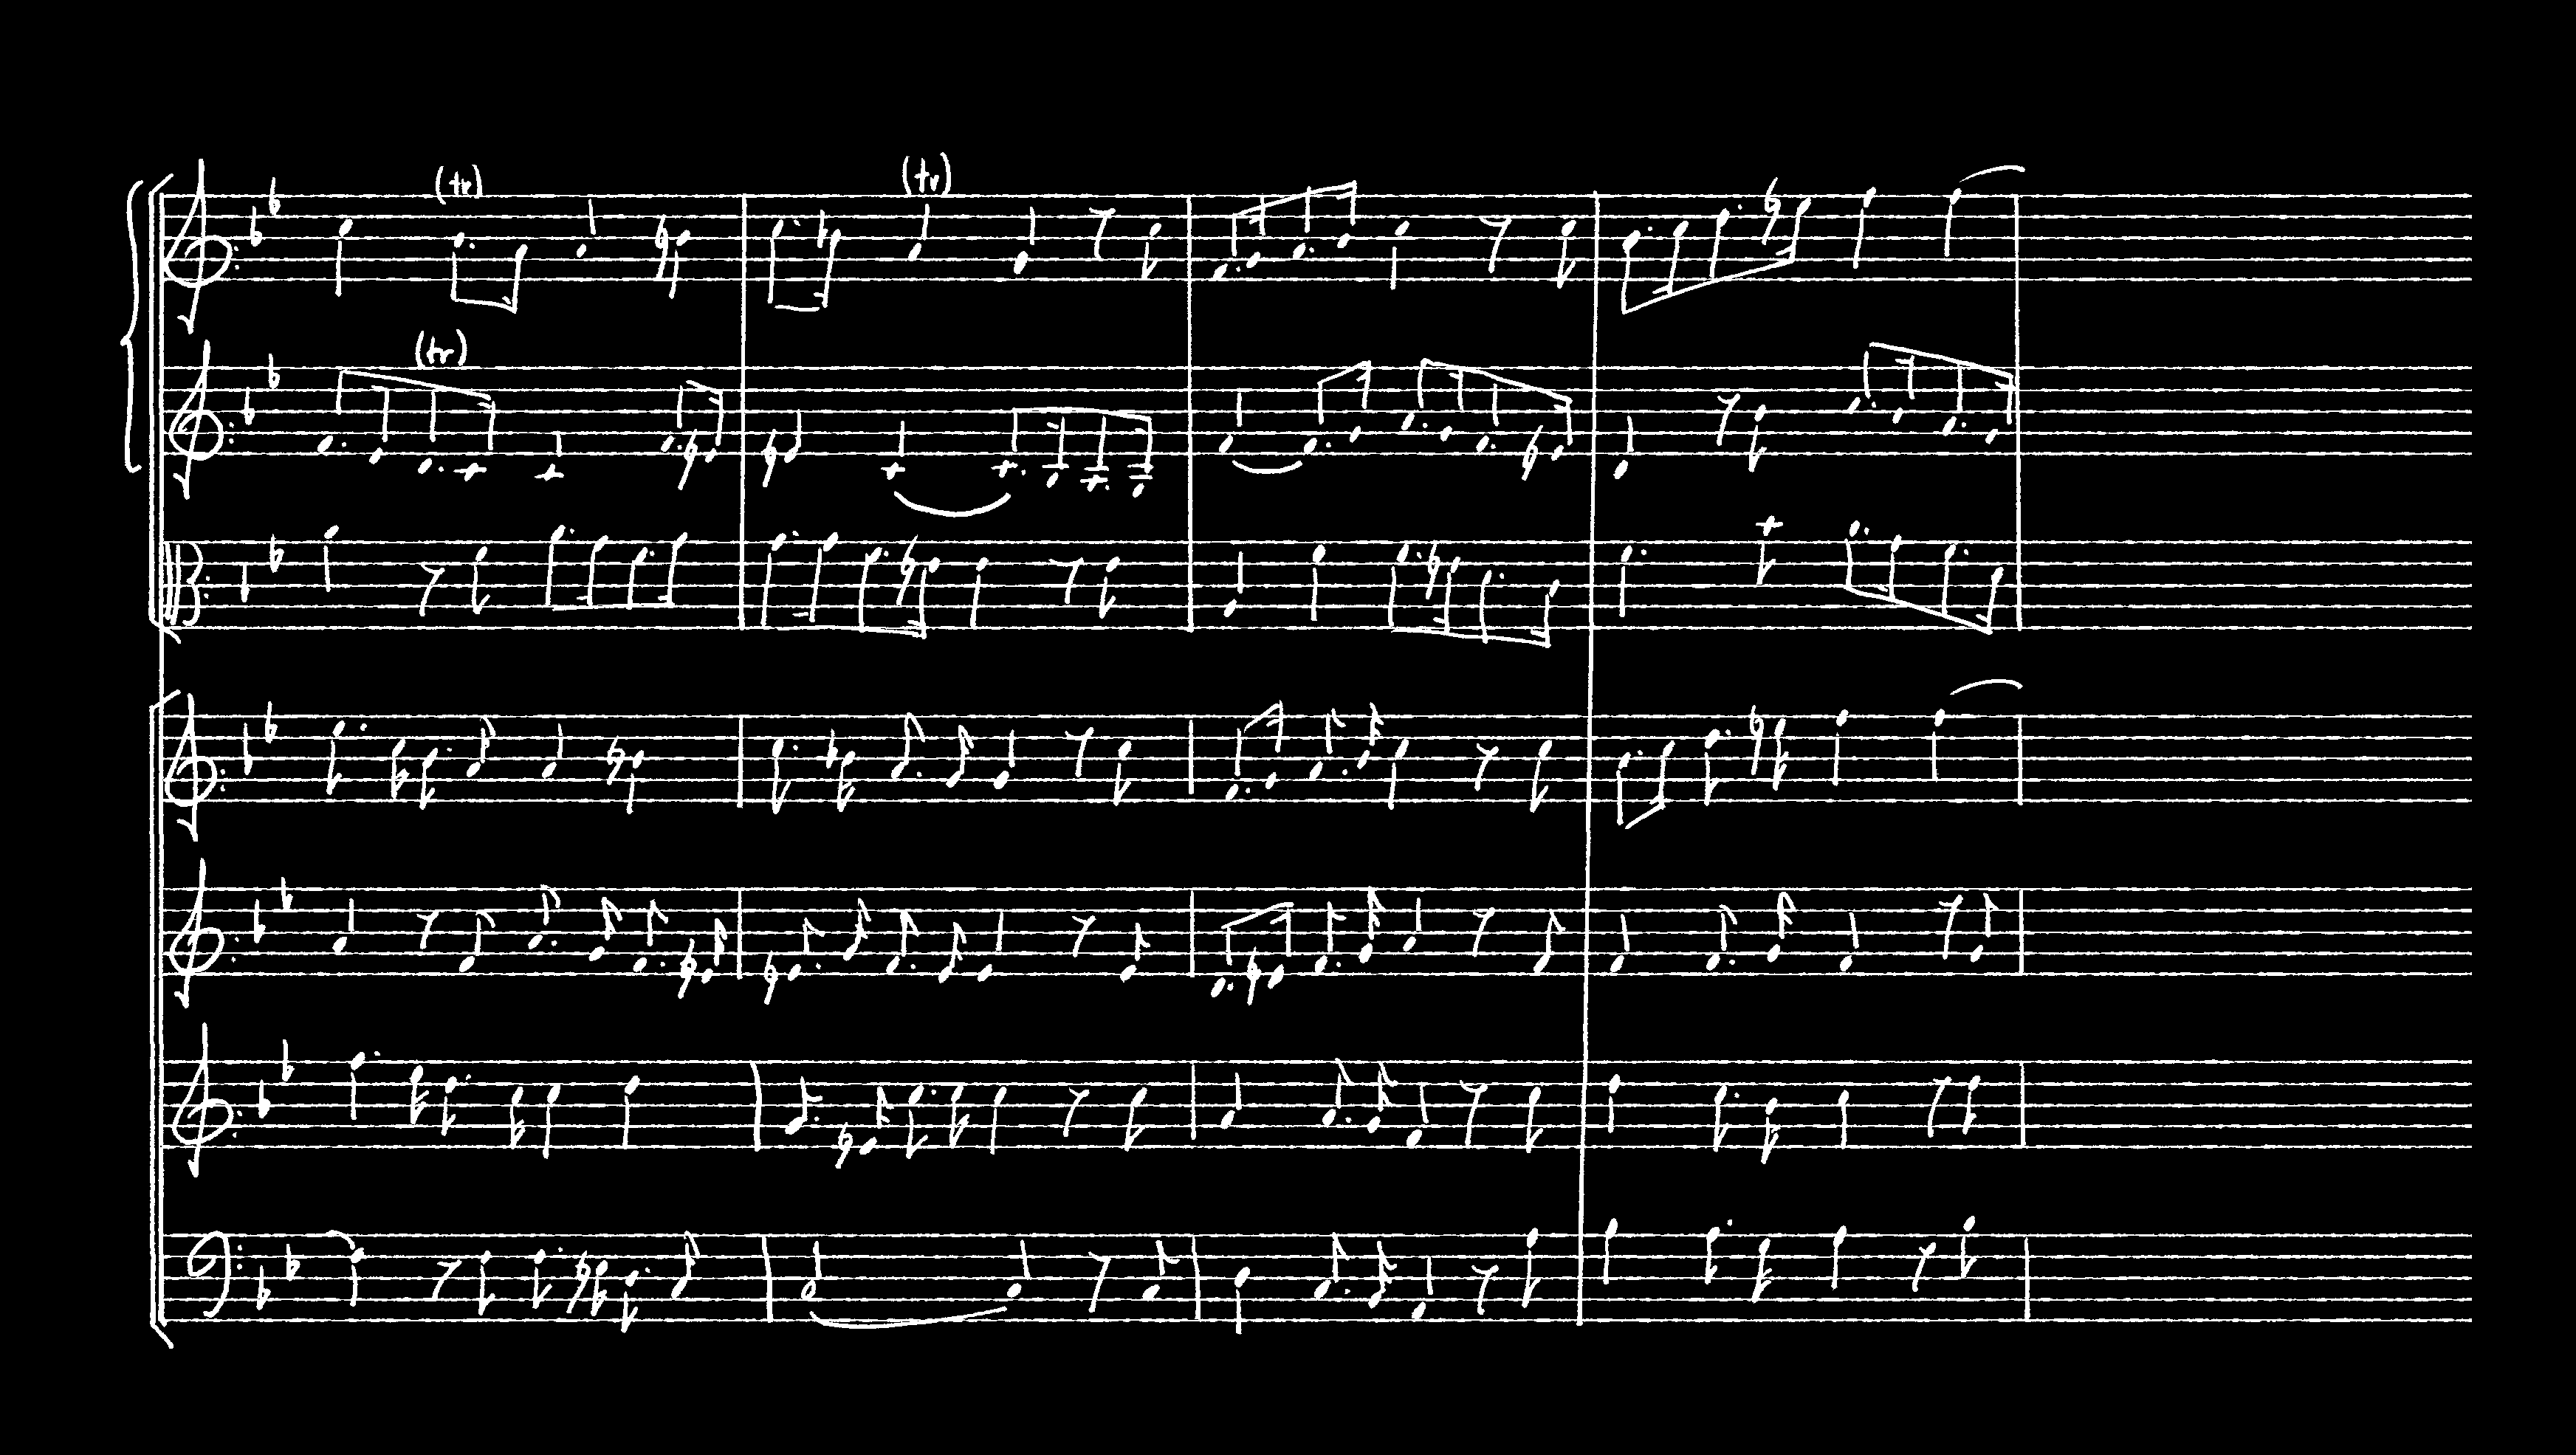 (tr)
(tr)
(tr)